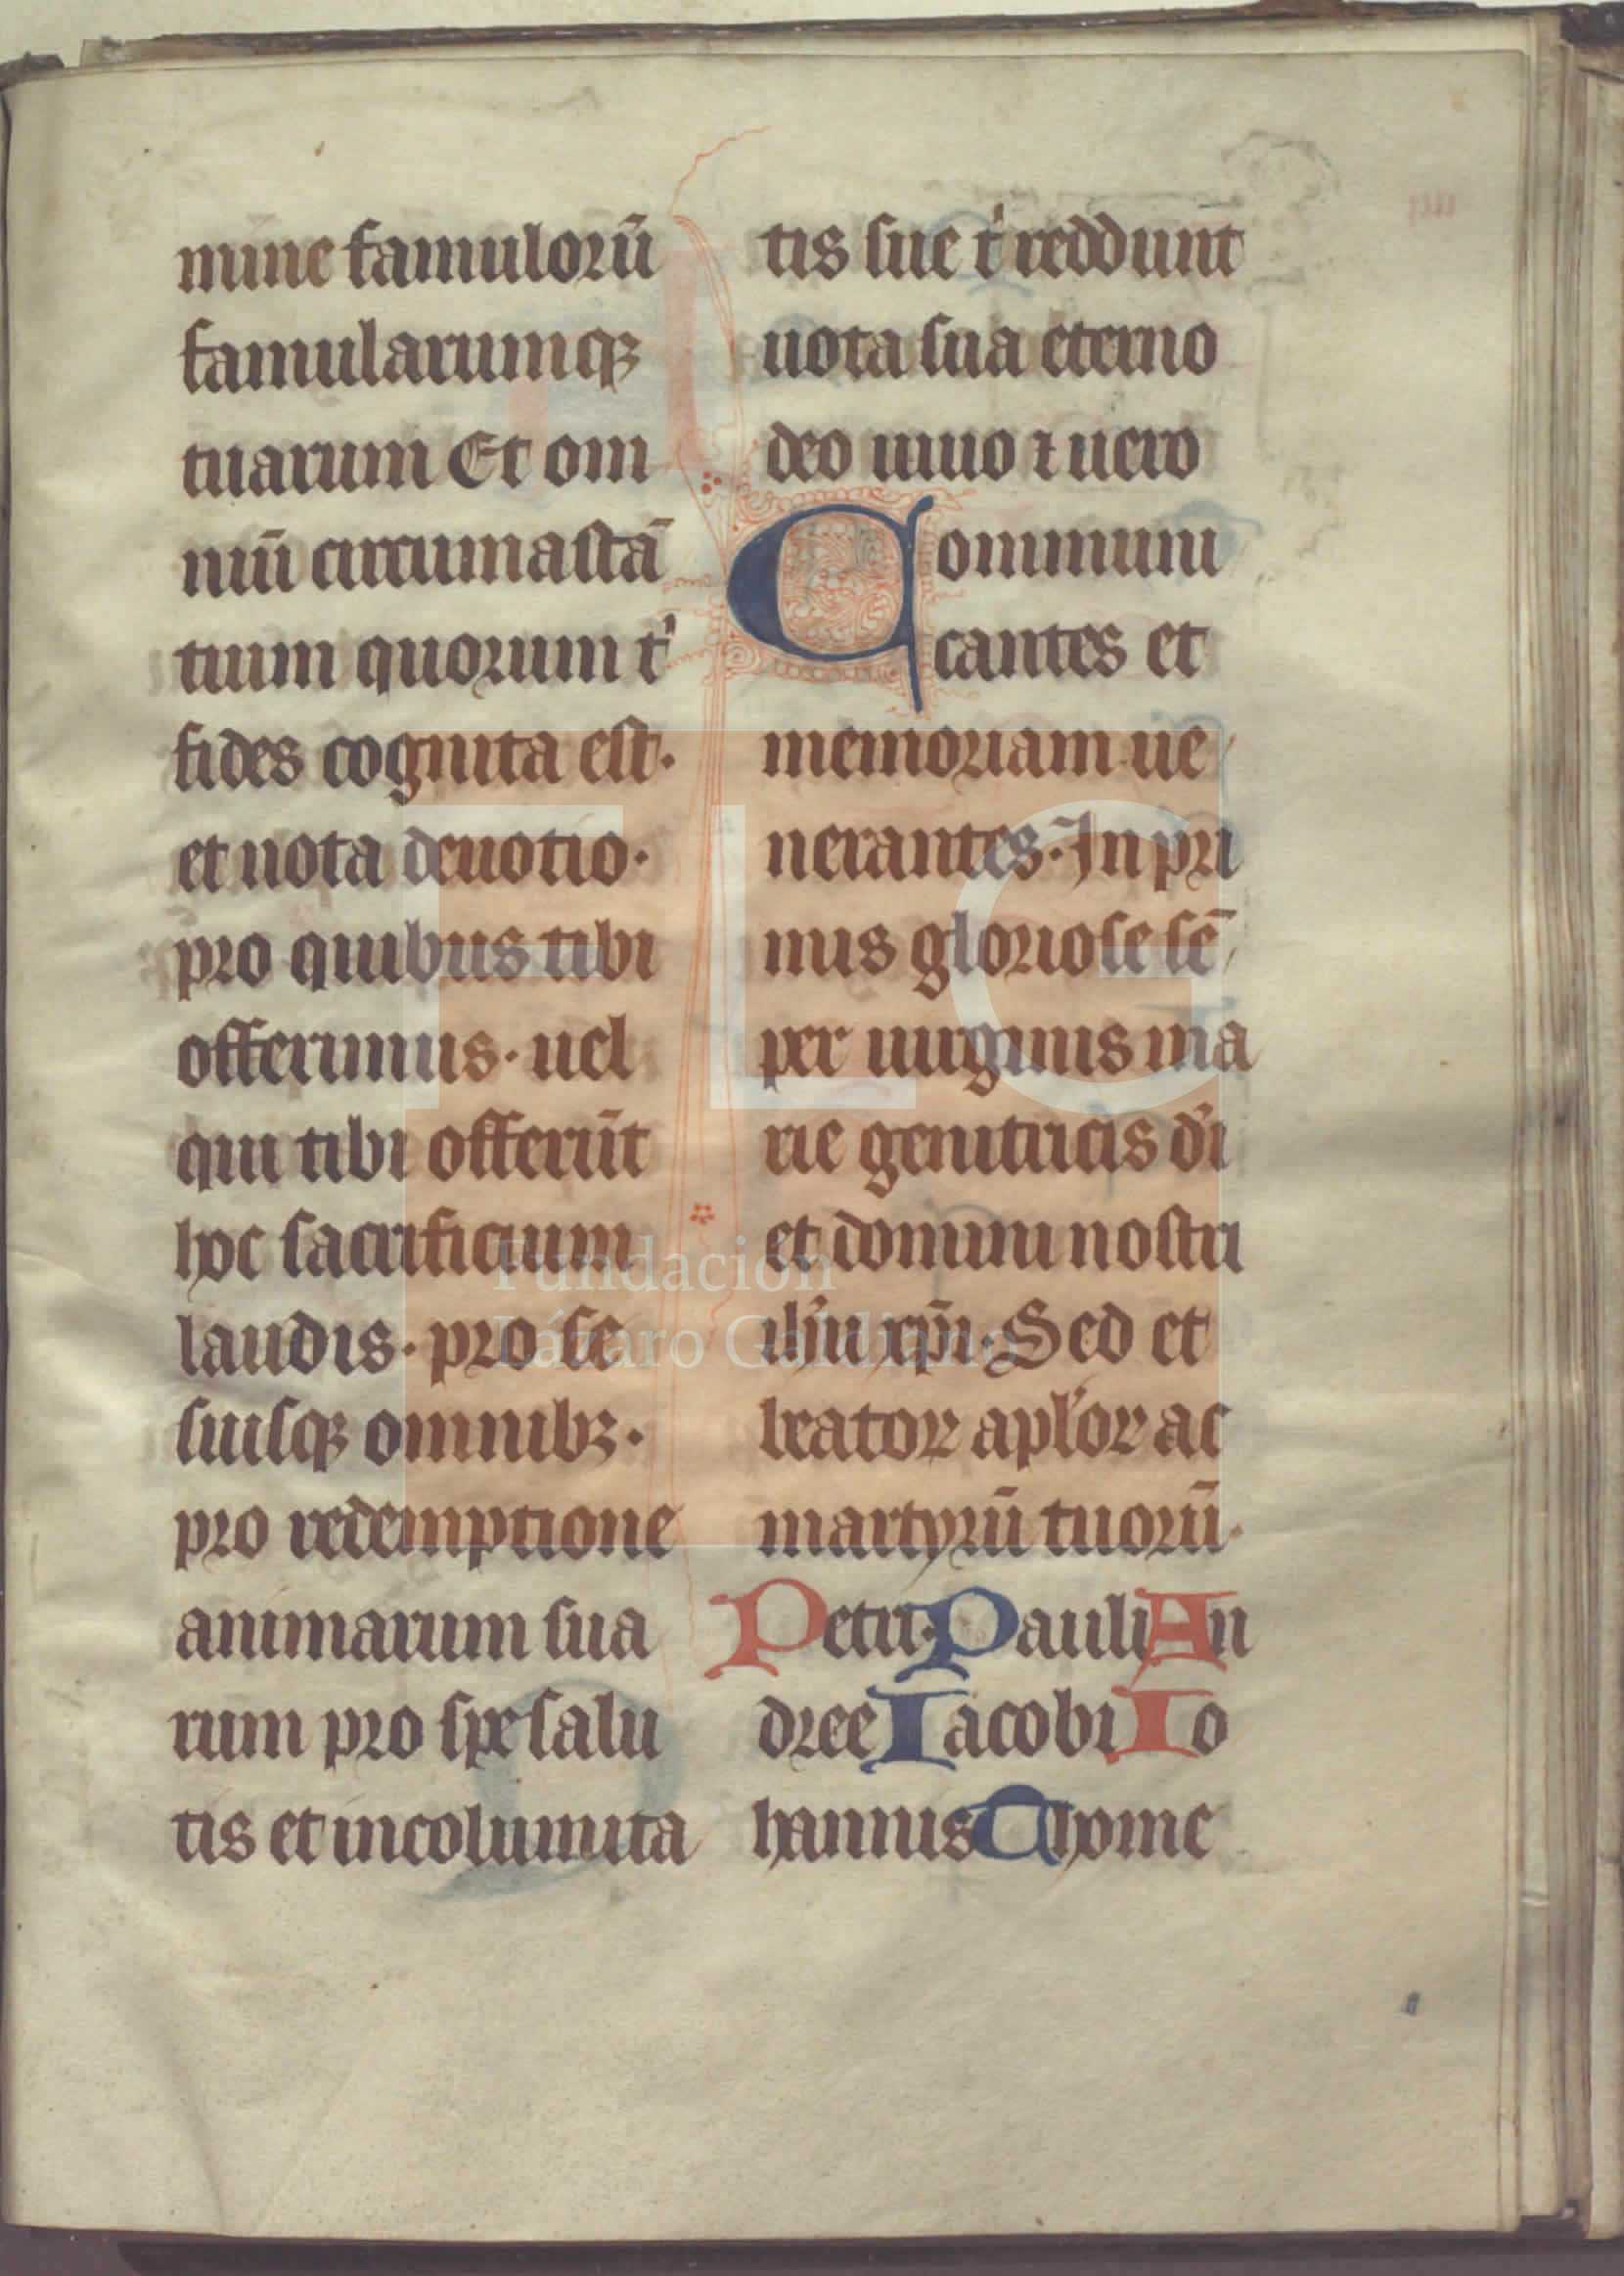 mine famulorū
famularumqꝫ
tuarum Et om
niū circumastā
tium quorum tͥ
fides cognita est·
et nota deuotio·
pro quibus tibi
offerimus· uel
qui tibi offerūt
hoc sacrificium
laudis· pro se
suisqꝫ omnibꝫ·
pro redemptione
animarum sua
rum pro spe salu
tis et incolumita
tis sue tͥ reddunt
uota sua eterno
deo uiuo ⁊ uero
Communi
cantes et
memoriam ue
nerantes· In pri
mis gloriose sē
per uirginis ma
rie genitricis di̾
et domini nostri
ih̾u xp̄i· Sed et
beatoꝝ apl̾oꝝ ac
martyrū tuorū·
Petri· Pauli An
dree Iacobi Io
hannis Thome
FLG
Fundación
Lázaro Galdiano